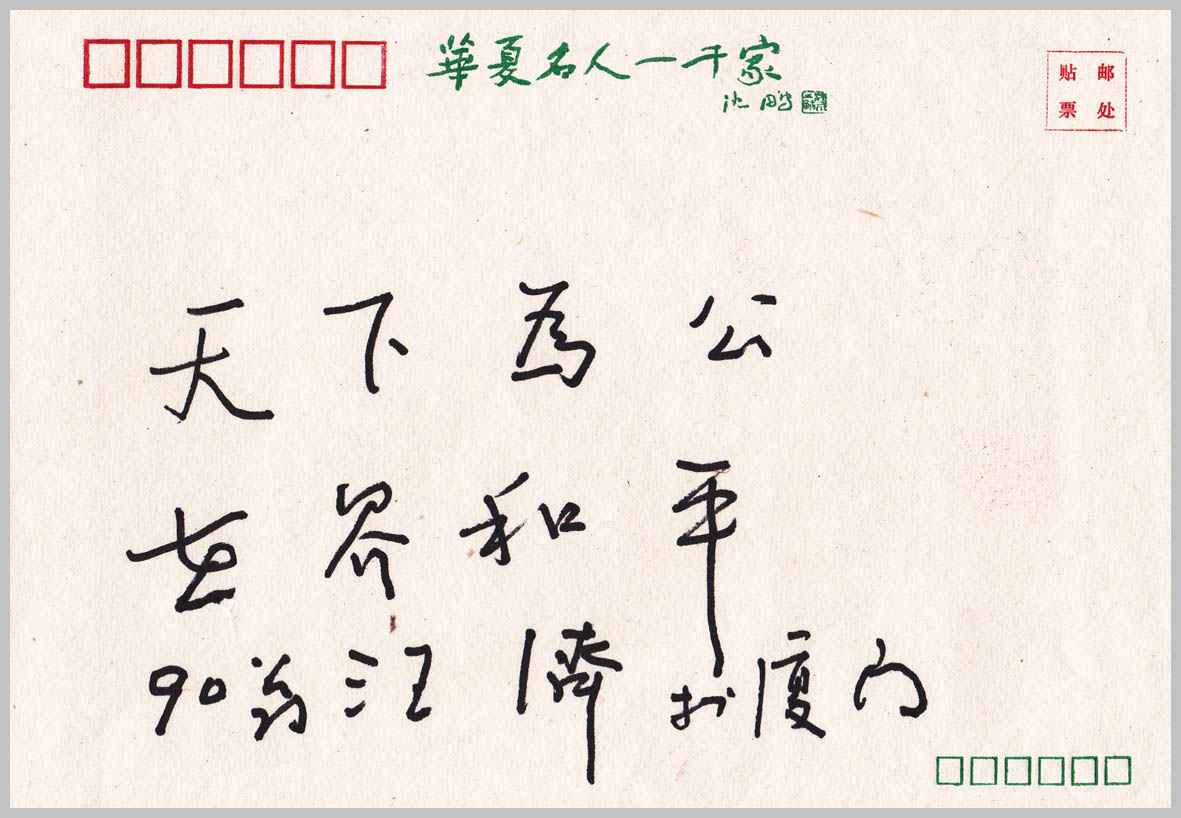 華夏名人一千家
沈鹏
贴邮
票处
天下為公
世界和平
90翁汪濟於厦门